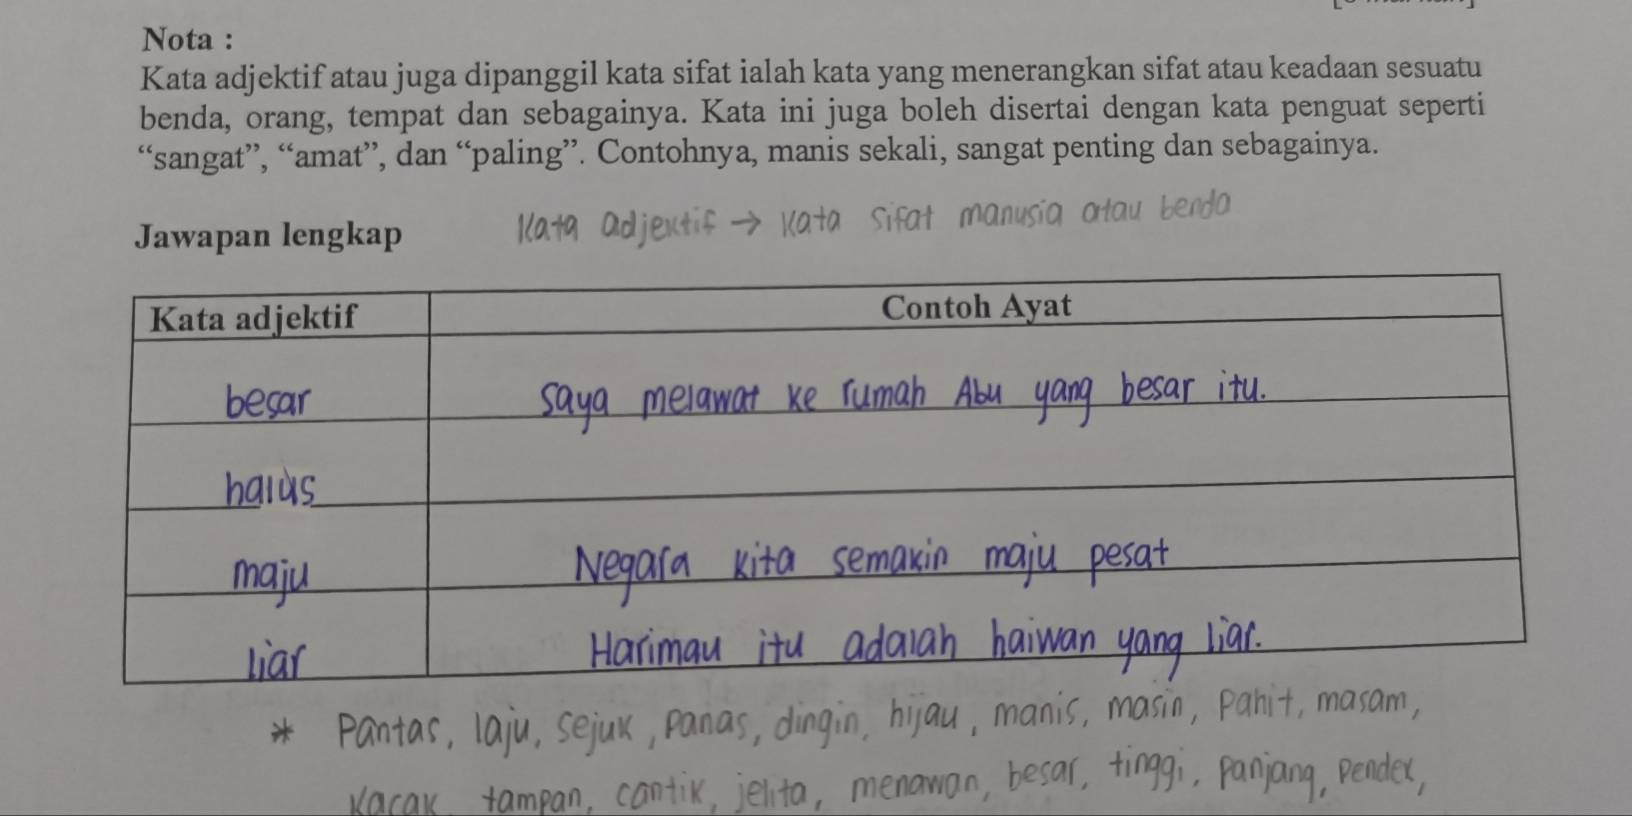 Nota :
Kata adjektif atau juga dipanggil kata sifat ialah kata yang menerangkan sifat atau keadaan sesuatu
benda, orang, tempat dan sebagainya. Kata ini juga boleh disertai dengan kata penguat seperti
“sangat”, “amat”, dan “paling”. Contohnya, manis sekali, sangat penting dan sebagainya.
Kata adjektif → kata sifat manusia atau benda
Jawapan lengkap
Kata adjektif Contoh Ayat
besar saya melawat ke rumah Abu yang besar itu.
halus
maju Negara kita semakin maju pesat
liar Harimau itu adalah haiwan yang liar.
* Pantas, laju, sejuk, panas, dingin, hijau, manis, masin, pahit, masam,
kacak tampan, cantik, jelita, menawan, besar, tinggi, panjang, pendek,